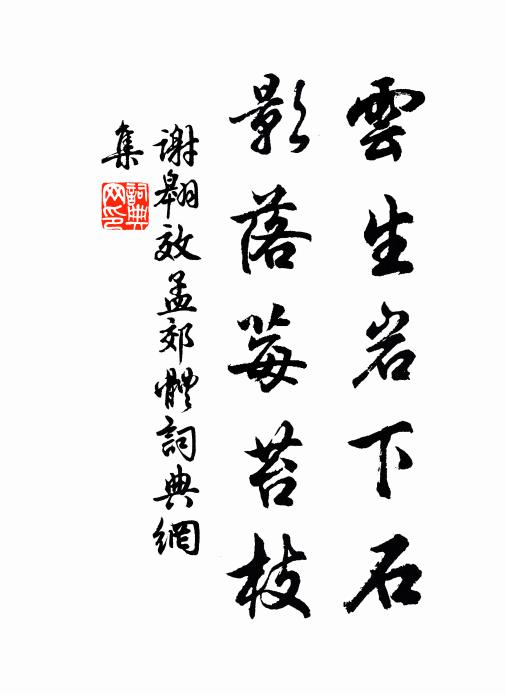 雲生岩下石
影落莓苔枝
謝翱效孟郊體詞典網
集
詞典
网印